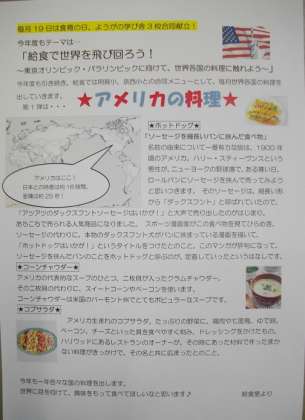 毎月19日は食育の日。ようがの学び舎3校合同献立！
今年度もテーマは…
「給食で世界を飛び回ろう！
～東京オリンピック・パラリンピックに向けて、世界各国の料理に触れよう～」
今年度も引き続き、給食では用賀小、京西小との合同メニューとして、毎月世界各国の料理を
出していきます。
第1弾は・・・
★アメリカの料理★
★ホットドッグ★
「ソーセージを細長いパンに挟んだ食べ物」
名前の由来について一番有力な説は、1900年
頃のアメリカ、ハリー・スティーヴンスという
男性が、ニューヨークの野球場で、ある寒い日、
ロールパンにソーセージを挟んで売ってみよう
と思いつきます。そのソーセージは、細長い形
から「ダックスフント」と呼ばれていたので、
アメリカはここ！
日本との時差は約16時間、
面積は約25倍！
「アツアツのダックスフントソーセージはいかが！」と大声で売り出したのがはじまり。
あちこちで売られる人気商品になりました。スポーツ漫画家がこの食べ物を見てひらめき、
ソーセージの代わりに、本物のダックスフント犬がパンに挟まっている漫画を描いて、
「ホットドッグはいかが！」というタイトルをつけたとのこと。このマンガが評判になって、
ソーセージを挟んだパンのことをホットドッグと呼ぶのが、定着していったというはなしです。
★コーンチャウダー★
アメリカの代表的なスープのひとつ、二枚貝が入ったクラムチャウダー。
その二枚貝の代わりに、スイートコーンやベーコンを使います。
コーンチャウダーは米国のバーモント州でとてもポピュラーなスープです。
★コブサラダ★
アメリカ生まれのコブサラダ。たっぷりの野菜に、鶏肉や七面鳥、ゆで卵、
ベーコン、チーズといった具を食べやすく刻み、ドレッシングをかけたもの。
ハリウッドにあるレストランのオーナーが、その時にあった材料で作ったまか
ない料理がきっかけで、その名と共に広まったとのこと。
今年も一年色々な国の料理を出します。
世界に目を向けて、興味をもって食べてほしいなと思います♪
給食室より